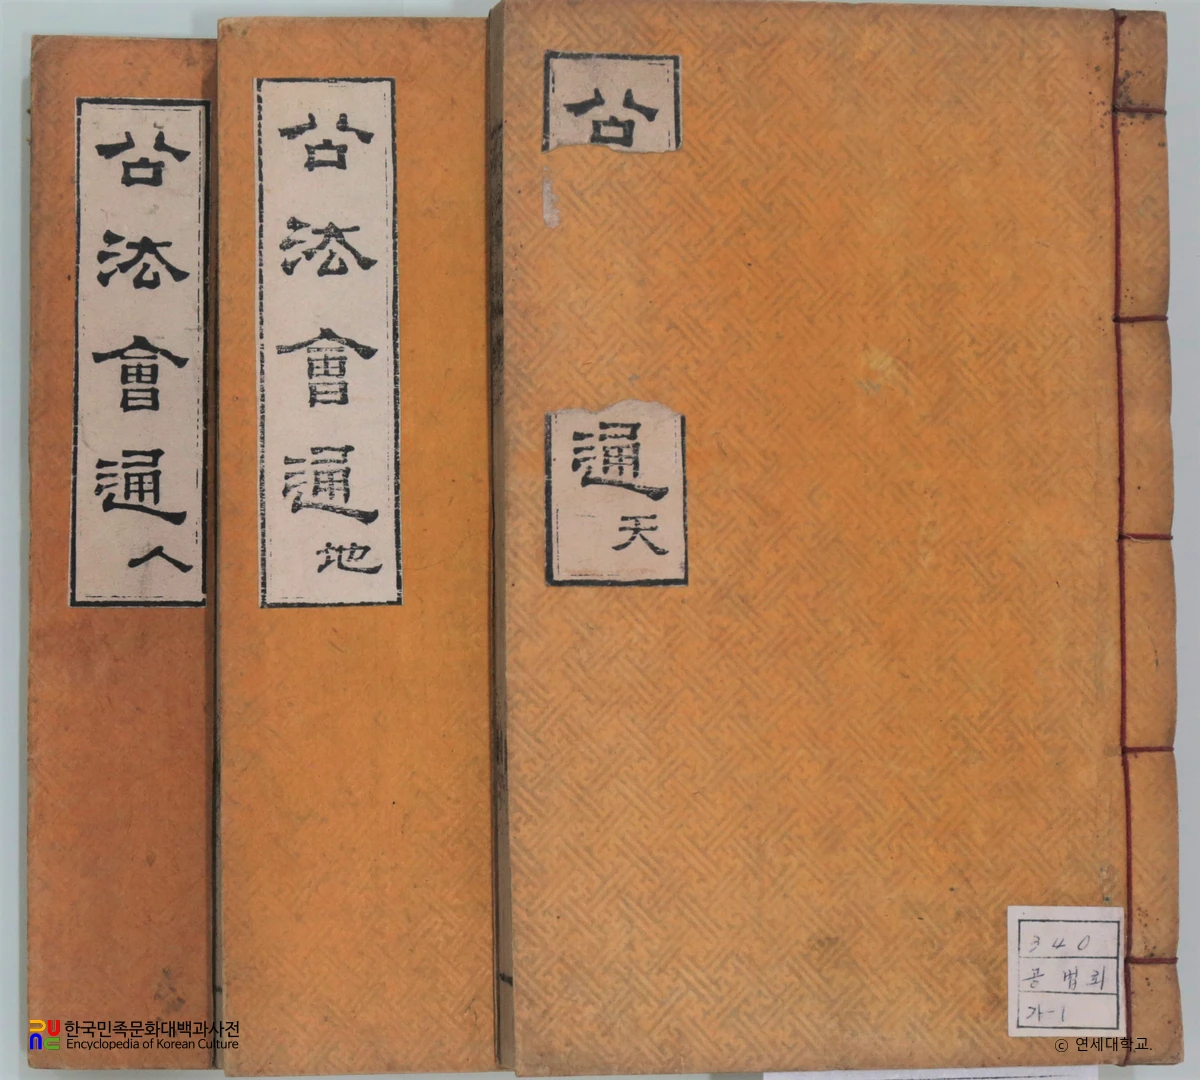 公
通
天
公法會通
地
公法會通
人
340
공법회
가-1
한국민족문화대백과사전
Encyclopedia of Korean Culture
© 연세대학교.